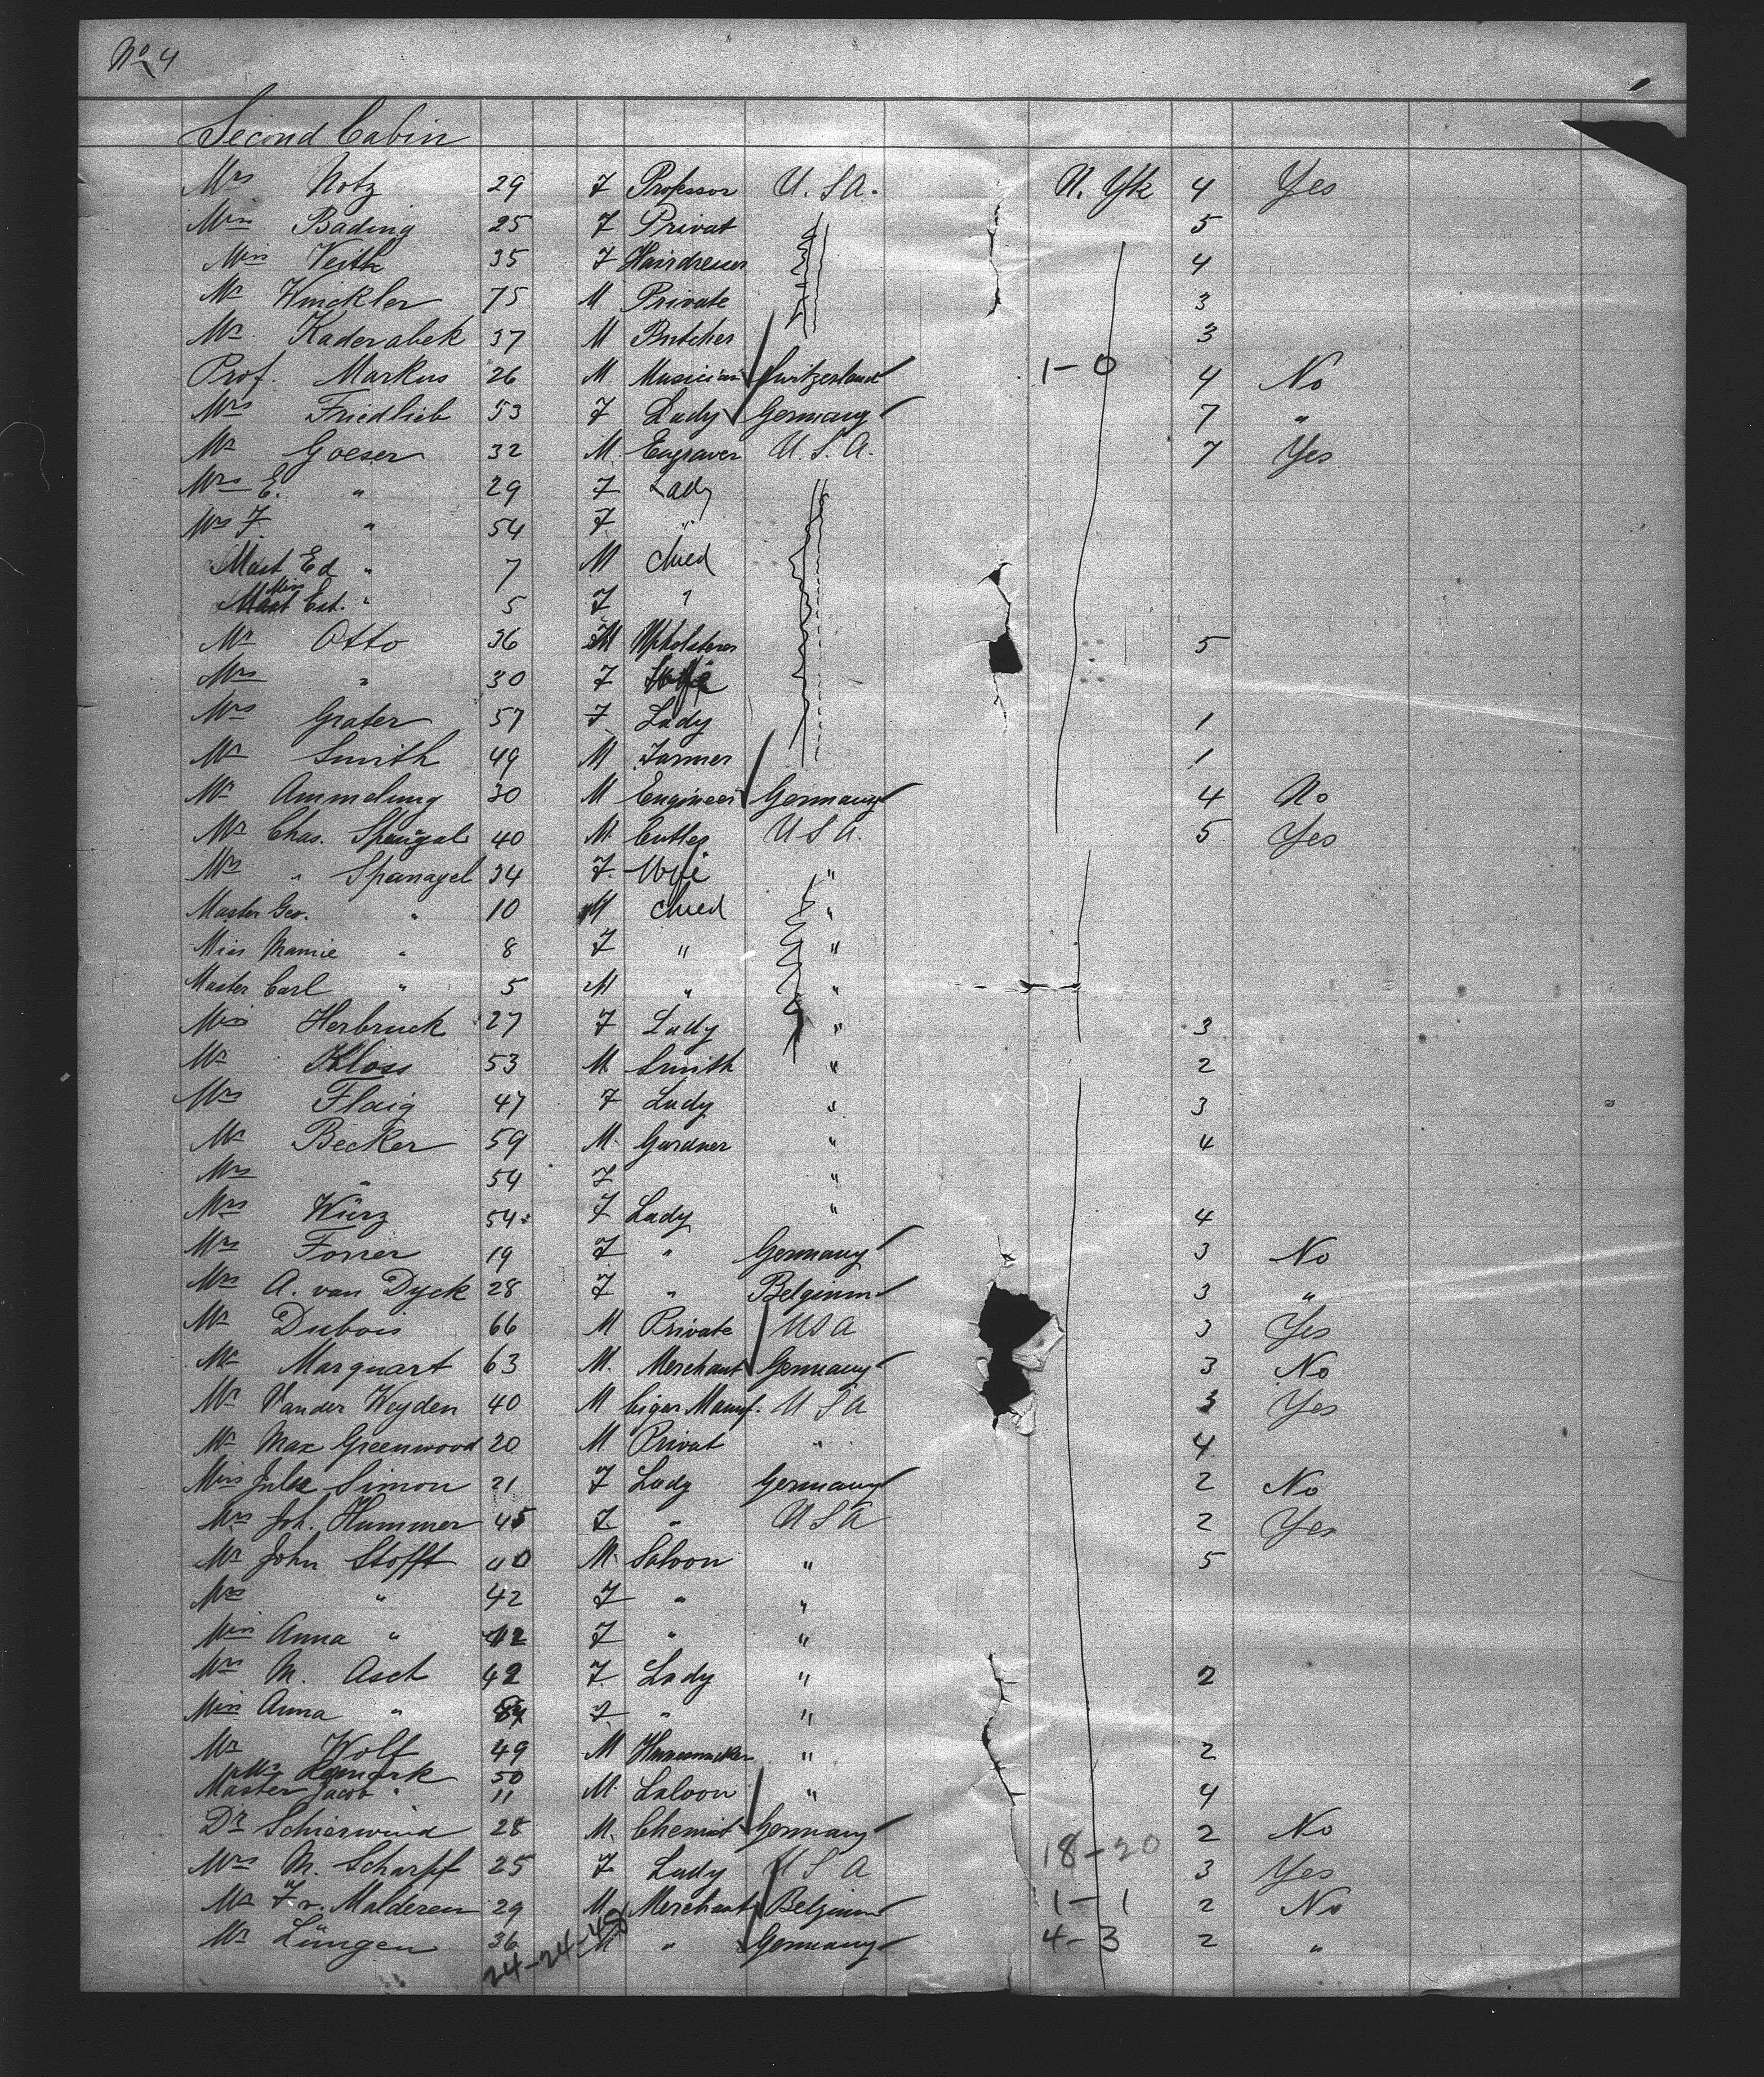 No 4
Second Cabin
Mrs Notz 29 F Professor U.S.A. N. Yk 4 Yes
Miss Bading 25 F Privat 5
Miss Veith 35 F Hairdresser 4
Mr Winckler 75 M Private 3
Mr Kaderabek 37 M Butcher 3
Prof. Markus 26 M Musician Switzerland 1-0 4 No
Mrs Friedlieb 53 F Lady Germany 7 "
Mr Goeser 32 M. Engraver U.S.A. 7 Yes
Mrs E. " 29 F Lady
Mrs F. " 54 F. "
Mast Ed " 7 M Child
Miss Cat. " 5 F "
Mr Otto 36 M Upholsterer 5
Mrs " 30 F Wife
Mrs Grater 57 F Lady 1
Mr Smith 49 M Farmer 1
Mr Ammelung 30 M Engineer Germany 4 No
Mr Chas. Spengal 40 M. Cutler U S A. 5 Yes
Mrs " Spanagel 34 F. Wife "
Master Geo. " 10 M Child "
Miss Mamie " 8 F " "
Master Carl " 5 M " "
Miss Herbruck 27 F Lady " 3
Mr Kloss 53 M Smith " 2
Mrs Flaig 47 F Lady " 3
Mr Becker 59 M. Gardner " 4
Mrs " 54 F "
Mrs Würz 54 F Lady " 4
Mrs Forrer 19 F " Germany 3 No
Mrs A. van Dyck 28 F " Belgium 3 "
Mr Dubois 66 M Private U S A 3 Yes
Mr Marquart 63 M. Merchant Germany 3 No
Mr Vander Weyden 40 M Cigar Manuf. U S A 3 Yes
Mr Max Greenwood 20 M. Privat " 4
Miss Julie Simon 21 F Lady Germany 2 No
Mrs Joh. Hummer 45 F. " U S A 2 Yes
Mr John Stofft 40 M. Saloon " 5
Mrs " 42 F " "
Miss Anna " 12 F " "
Mrs M. Asch 42 F. Lady " 2
Miss Anna " F " "
Mr Wolf 49 M " 2
Mr Lamark 50
Master Jacob " 11 M. Saloon " 4
Dr Schierwind 28 M. Chemist Germany 2 No
Mrs M. Scharpf 25 F Lady U S A 18-20 3 Yes
Mr F. v. Malderen 29 M. Merchant Belgium 1-1 2 No
Mr Lüngen 36 M " Germany 4-3 2 "
24-24-48